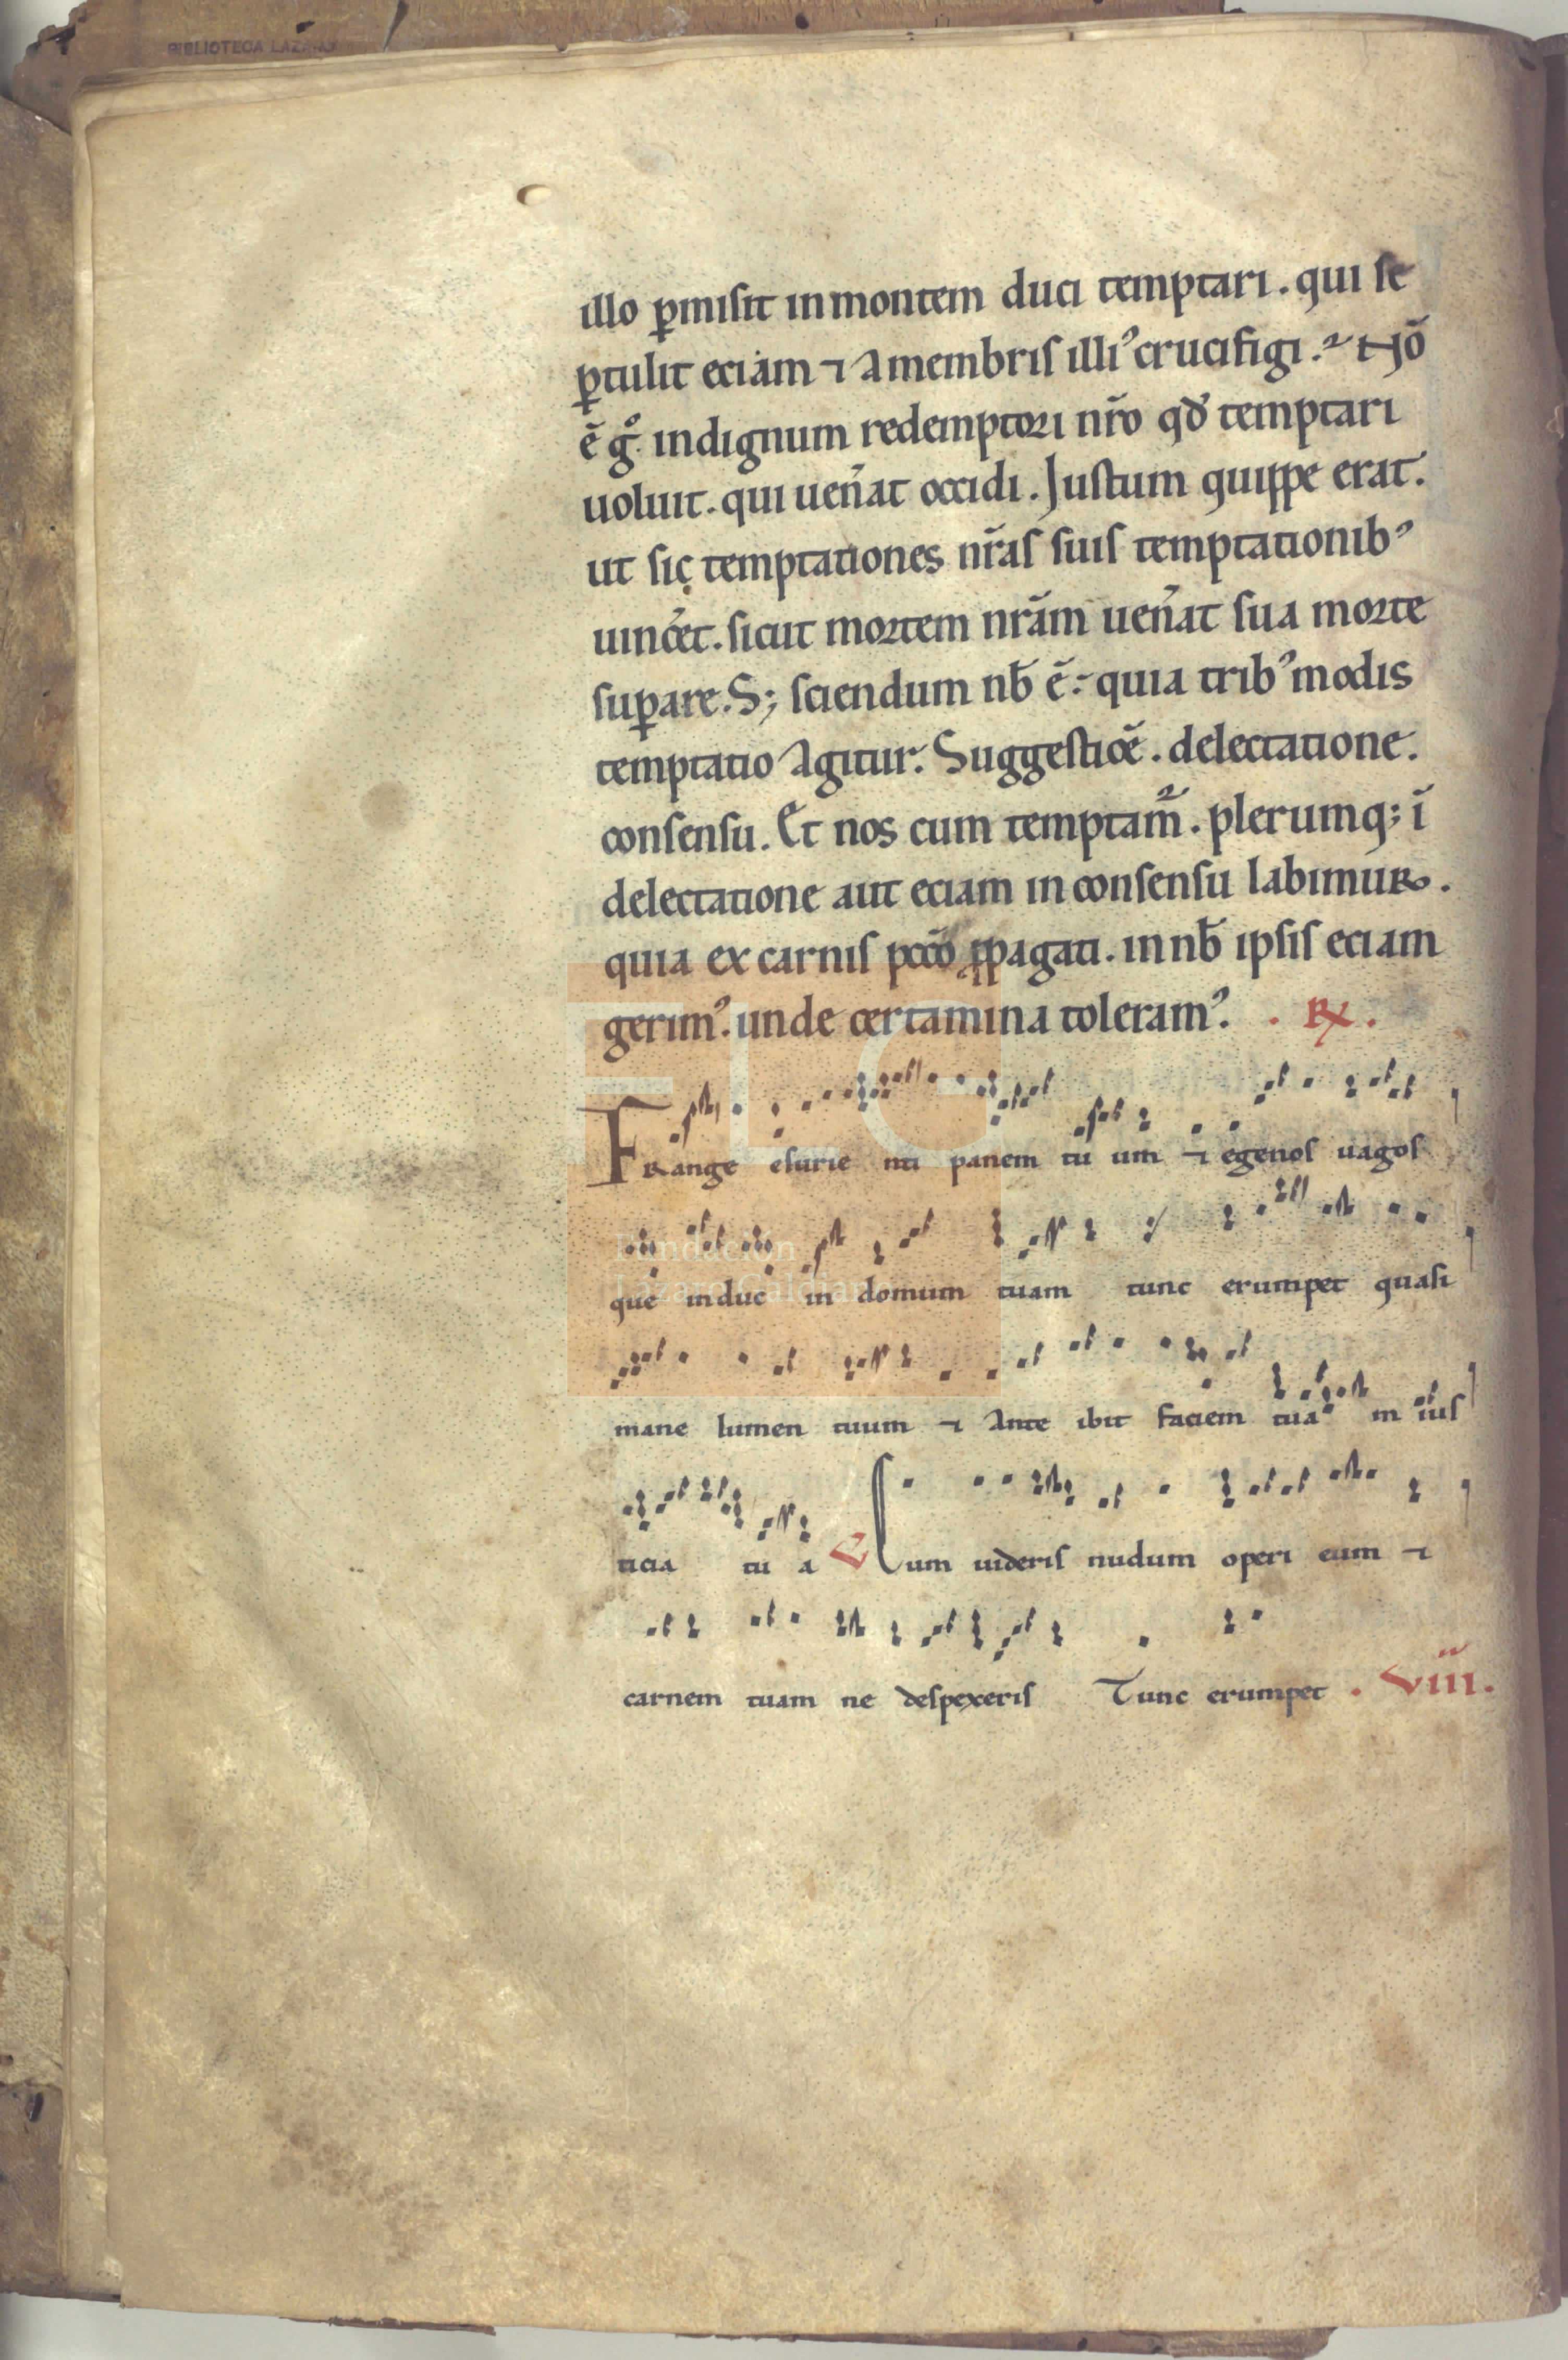 BIBLIOTECA LAZARO
illo ꝑmisit inmontem duci temptari. qui se
ꝑtulit eciam ⁊ amembris illiꝰ crucifigi. Nō
ē gͦ indignum redemptori nr̄o qđ temptari
uoluit. qui uen̄at occidi. Justum quippe erat.
ut sic temptationes nr̄as suis temptationibꝰ
uinc̄et. sicut mortem nrām uen̄at sua morte
suꝑare. S; sciendum nb̄ ē. quia tribꝰ modis
temptatio agitur. Suggestioē. delectatione.
consensu. Et nos cum temptam̄. plerumq; ī
delectatione aut eciam in consensu labimur.
quia ex carnis pccō ꝓpagati. in nb̄ ipsis eciam
gerimꝰ. unde certamina toleramꝰ. . R℟.
FRange esurie nti panem tu um ⁊ egenos uagos
que induc in domum tuam tunc erumpet quasi
mane lumen tuum ⁊ ante ibit faciem tuā ius
ticia tu a V Cum uideris nudum operi eum ⁊
carnem tuam ne despexeris Tunc erumpet . Viii.
FLG
Fundación
Lázaro Galdiano